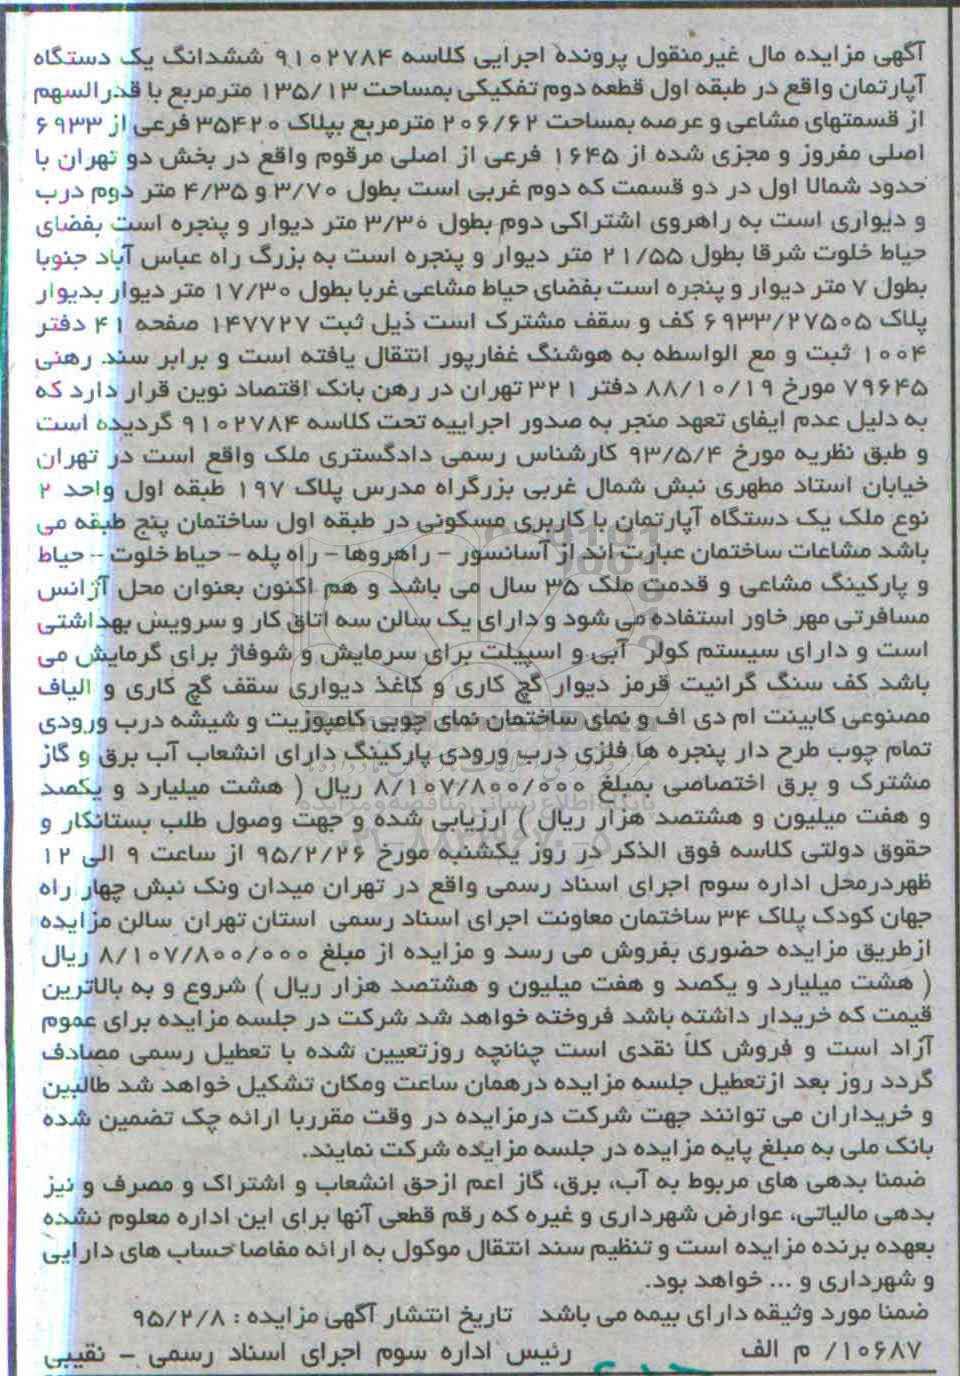 آگهی مزایده مال غیرمنقول پرونده اجرایی کلاسه ۹۱۰۲۷۸۴ ششدانگ یک دستگاه
آپارتمان واقع در طبقه اول قطعه دوم تفکیکی بمساحت ۱۳۵/۱۳ مترمربع با قدرالسهم
از قسمتهای مشاعی و عرصه بمساحت ۲۰۶/۶۲ مترمربع بپلاک ۳۵۴۲۰ فرعی از ۶۹۳۳
اصلی مفروز و مجزی شده از ۱۶۴۵ فرعی از اصلی مرقوم واقع در بخش دو تهران با
حدود شمالا اول در دو قسمت که دوم غربی است بطول ۳/۷۰ و ۴/۳۵ متر دوم درب
و دیواری است به راهروی اشتراکی دوم بطول ۳/۳۰ متر دیوار و پنجره است بفضای
حیاط خلوت شرقا بطول ۲۱/۵۵ متر دیوار و پنجره است به بزرگ راه عباس آباد جنوبا
بطول ۷ متر دیوار و پنجره است بفضای حیاط مشاعی غربا بطول ۱۷/۳۰ متر دیوار بدیوار
پلاک ۶۹۳۳/۲۷۵۰۵ کف و سقف مشترک است ذیل ثبت ۱۴۷۷۲۷ صفحه ۴۱ دفتر
۱۰۰۴ ثبت و مع الواسطه به هوشنگ غفارپور انتقال یافته است و برابر سند رهنی
۷۹۶۴۵ مورخ ۸۸/۱۰/۱۹ دفتر ۳۲۱ تهران در رهن بانک اقتصاد نوین قرار دارد که
به دلیل عدم ایفای تعهد منجر به صدور اجراییه تحت کلاسه ۹۱۰۲۷۸۴ گردیده است
و طبق نظریه مورخ ۹۳/۵/۴ کارشناس رسمی دادگستری ملک واقع است در تهران
خیابان استاد مطهری نبش شمال غربی بزرگراه مدرس پلاک ۱۹۷ طبقه اول واحد ۲
نوع ملک یک دستگاه آپارتمان با کاربری مسکونی در طبقه اول ساختمان پنج طبقه می
باشد مشاعات ساختمان عبارت اند از آسانسور - راهروها - راه پله - حیاط خلوت - حیاط
و پارکینگ مشاعی و قدمت ملک ۳۵ سال می باشد و هم اکنون بعنوان محل آژانس
مسافرتی مهر خاور استفاده می شود و دارای یک سالن سه اتاق کار و سرویس بهداشتی
است و دارای سیستم کولر آبی و اسپیلت برای سرمایش و شوفاژ برای گرمایش می
باشد کف سنگ گرانیت قرمز دیوار گچ کاری و کاغذ دیواری سقف گچ کاری و الیاف
مصنوعی کابینت ام دی اف و نمای ساختمان نمای چوبی کامپوزیت و شیشه درب ورودی
تمام چوب طرح دار پنجره ها فلزی درب ورودی پارکینگ دارای انشعاب آب برق و گاز
مشترک و برق اختصاصی بمبلغ ۸/۱۰۷/۸۰۰/۰۰۰ ریال ( هشت میلیارد و یکصد
و هفت میلیون و هشتصد هزار ریال ) ارزیابی شده و جهت وصول طلب بستانکار و
حقوق دولتی کلاسه فوق الذکر در روز یکشنبه مورخ ۹۵/۲/۲۶ از ساعت ۹ الی ۱۲
ظهردرمحل اداره سوم اجرای اسناد رسمی واقع در تهران میدان ونک نبش چهار راه
جهان کودک پلاک ۳۴ ساختمان معاونت اجرای اسناد رسمی استان تهران سالن مزایده
ازطریق مزایده حضوری بفروش می رسد و مزایده از مبلغ ۸/۱۰۷/۸۰۰/۰۰۰ ریال
( هشت میلیارد و یکصد و هفت میلیون و هشتصد هزار ریال ) شروع و به بالاترین
قیمت که خریدار داشته باشد فروخته خواهد شد شرکت در جلسه مزایده برای عموم
آزاد است و فروش کلاً نقدی است چنانچه روزتعیین شده با تعطیل رسمی مصادف
گردد روز بعد ازتعطیل جلسه مزایده درهمان ساعت ومکان تشکیل خواهد شد طالبین
و خریداران می توانند جهت شرکت درمزایده در وقت مقرربا ارائه چک تضمین شده
بانک ملی به مبلغ پایه مزایده در جلسه مزایده شرکت نمایند.
ضمنا بدهی های مربوط به آب، برق، گاز اعم ازحق انشعاب و اشتراک و مصرف و نیز
بدهی مالیاتی، عوارض شهرداری و غیره که رقم قطعی آنها برای این اداره معلوم نشده
بعهده برنده مزایده است و تنظیم سند انتقال موکول به ارائه مفاصا حساب های دارایی
و شهرداری و ... خواهد بود.
ضمنا مورد وثیقه دارای بیمه می باشد تاریخ انتشار آگهی مزایده : ۹۵/۲/۸
۱۰۶۸۷/ م الف رئیس اداره سوم اجرای اسناد رسمی - نقیبی